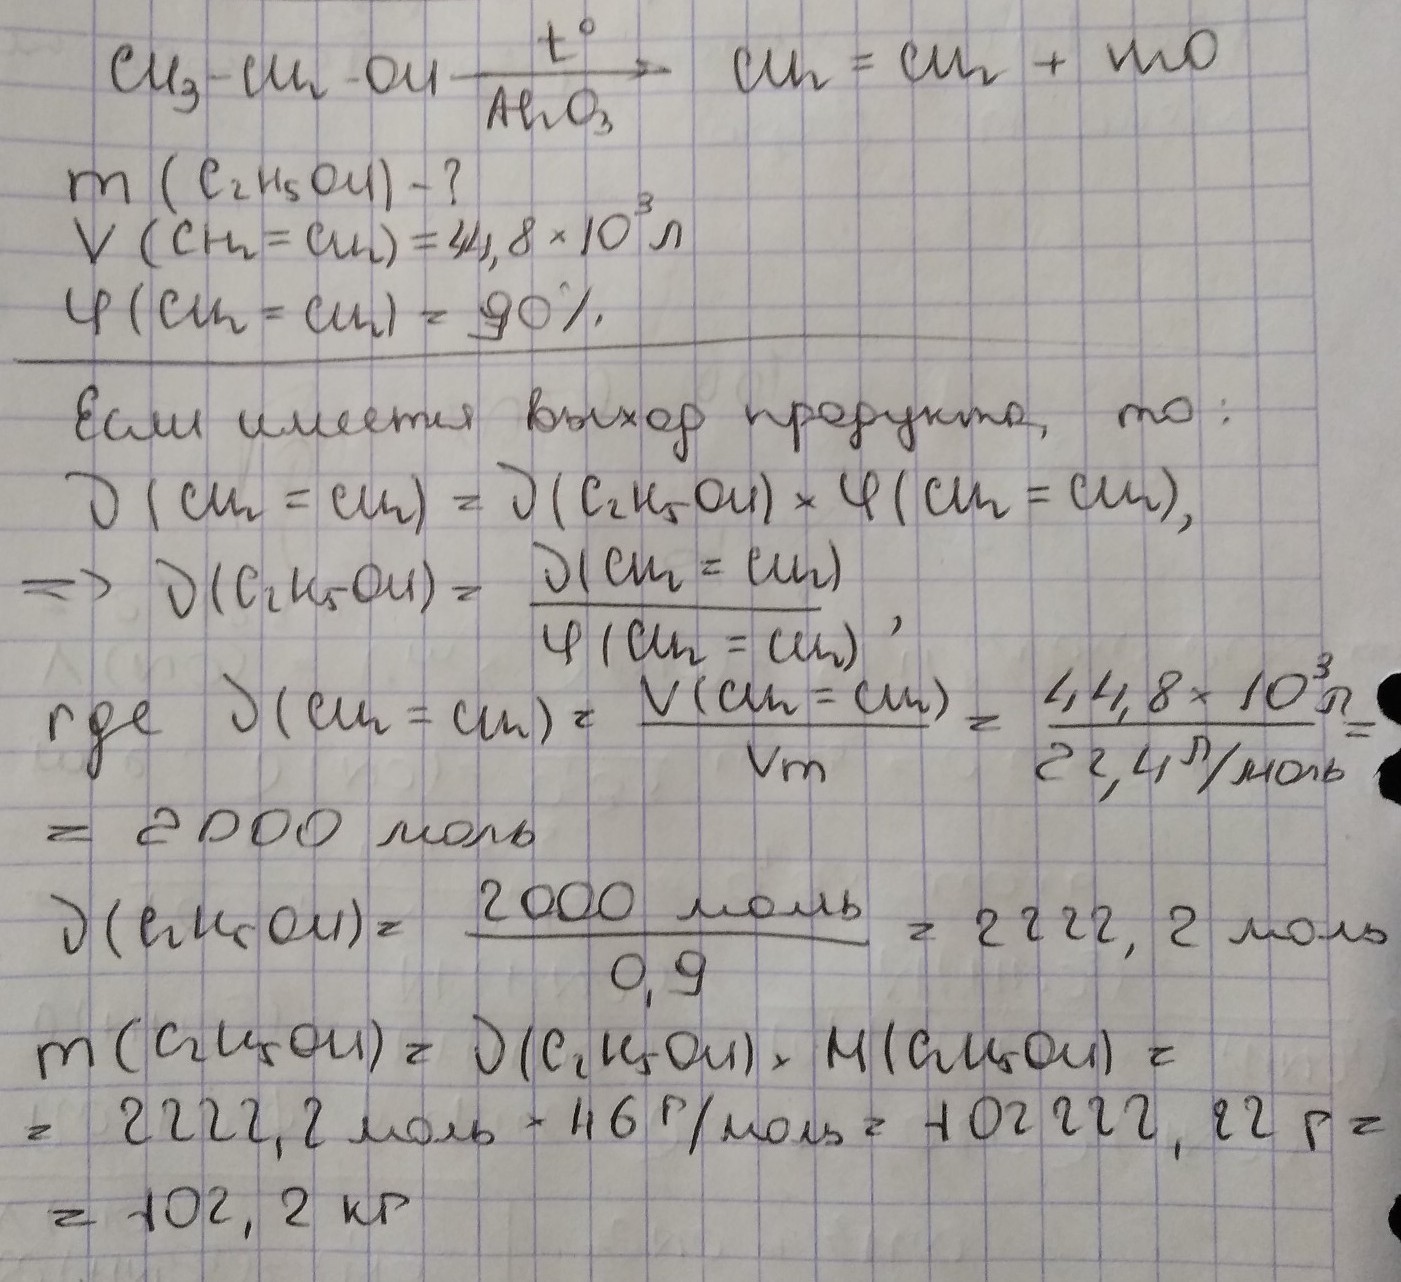 t°
CH₃-CH₂-OH → CH₂ = CH₂ + H₂O
Al₂O₃
m (C₂H₅OH) - ?
V (CH₂ = CH₂) = 44,8 × 10³ л
φ (CH₂ = CH₂) = 90%.
Если имеется выход продукта, то:
ν (CH₂ = CH₂) = ν (C₂H₅OH) × φ (CH₂ = CH₂),
=> ν (C₂H₅OH) = ν (CH₂ = CH₂) / φ (CH₂ = CH₂) ,
где ν (CH₂ = CH₂) = V (CH₂ = CH₂) / Vm = 44,8 × 10³ л / 22,4 л/моль =
= 2000 моль
ν (C₂H₅OH) = 2000 моль / 0,9 = 2222,2 моль
m (C₂H₅OH) = ν (C₂H₅OH) × M (C₂H₅OH) =
= 2222,2 моль × 46 г/моль = 102222,22 г =
= 102,2 кг